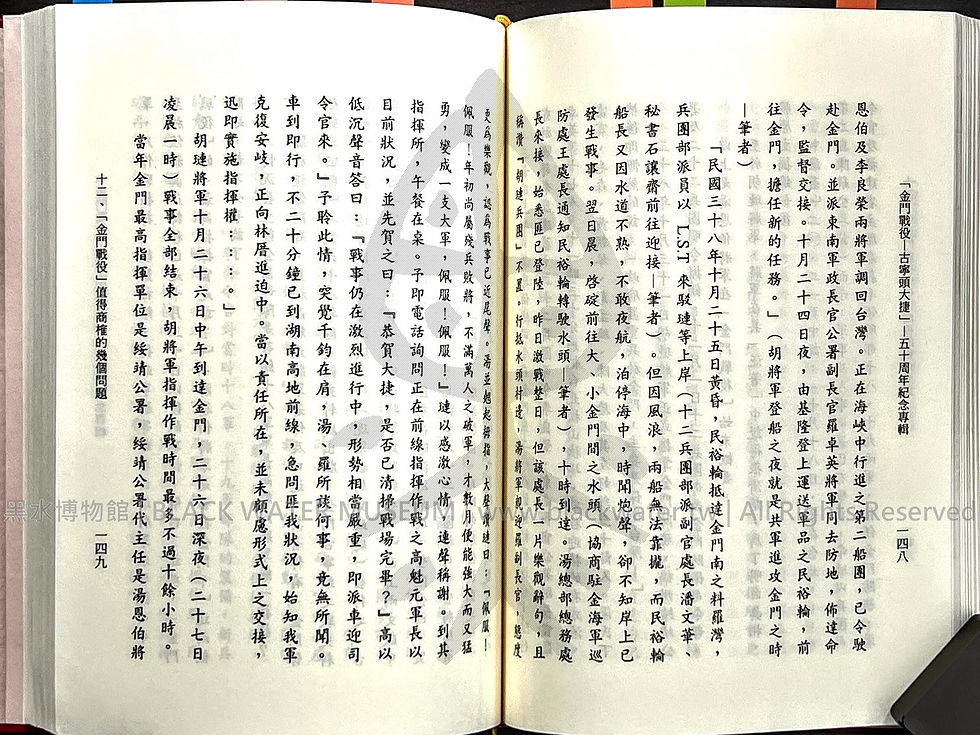 「金門戰役—古寧頭大捷」—五十周年紀念專輯
一四八
恩伯及李良榮兩將軍調回台灣。正在海峽中行進之第二船團，已令駛
赴金門。並派東南軍政長官公署副長官羅卓英將軍同去防地，佈達命
令，監督交接。十月二十四日夜，由基隆登上運送軍品之民裕輪，前
往金門，擔任新的任務。」（胡將軍登船之夜就是共軍進攻金門之時
—筆者）
「民國三十八年十月二十五日黃昏，民裕輪抵達金門南之料羅灣，
兵團部派員以 LST 來駁璉等上岸（十二兵團部派副官處長潘文華、
秘書石讓齋前往迎接—筆者）。但因風浪，兩船無法靠攏，而民裕輪
船長又因水道不熟，不敢夜航，泊停海中，時聞炮聲，卻不知岸上已
發生戰事。翌日晨，啓碇前往大、小金門間之水頭（協商駐金海軍巡
防處王處長通知民裕輪轉駛水頭—筆者），十時到達。湯總部總務處
長來接，始悉匪已登陸，昨日激戰整日，但該處長一片樂觀辭句，且
稱讚『胡璉兵團』不置。行抵水頭村邊，湯將軍親迎羅副長官，態度
更為樂觀，認為戰事已近尾聲。湯並翹起拇指，大聲讚璉曰：『佩服！
佩服！年初尚屬殘兵敗將，不滿萬人之破軍，才數月便能強大而又猛
勇，變成一支大軍，佩服！佩服！』璉以感激心情，連聲稱謝。到其
指揮所，午餐在桌。予即電話詢問正在前線指揮作戰之高魁元軍長以
目前狀況，並先賀之曰：『恭賀大捷，是否已清掃戰場完畢？』高以
低沉聲音答曰：『戰事仍在激烈進行中，形勢相當嚴重，即派車迎司
令官來。』予聆此情，突覺千鈞在肩，湯、羅所談何事，竟無所聞。
車到即行，不二十分鐘已到湖南高地前線，急問匪我狀況，始知我軍
克復安岐，正向林厝進迫中。當以責任所在，並未顧慮形式上之交接，
迅即實施指揮權：：：。」
胡璉將軍十月二十六日中午到達金門，二十六日深夜（二十七日
凌晨一時）戰事全部結束，胡將軍指揮作戰時間最多不過十餘小時。
當年金門最高指揮單位是綏靖公署，綏靖公署代主任是湯恩伯將
十二、「金門戰役」值得商榷的幾個問題
一四九
黑水博物館 | BLACK WATER MUSEUM | www.blackwater.tw | All Rights Reserved